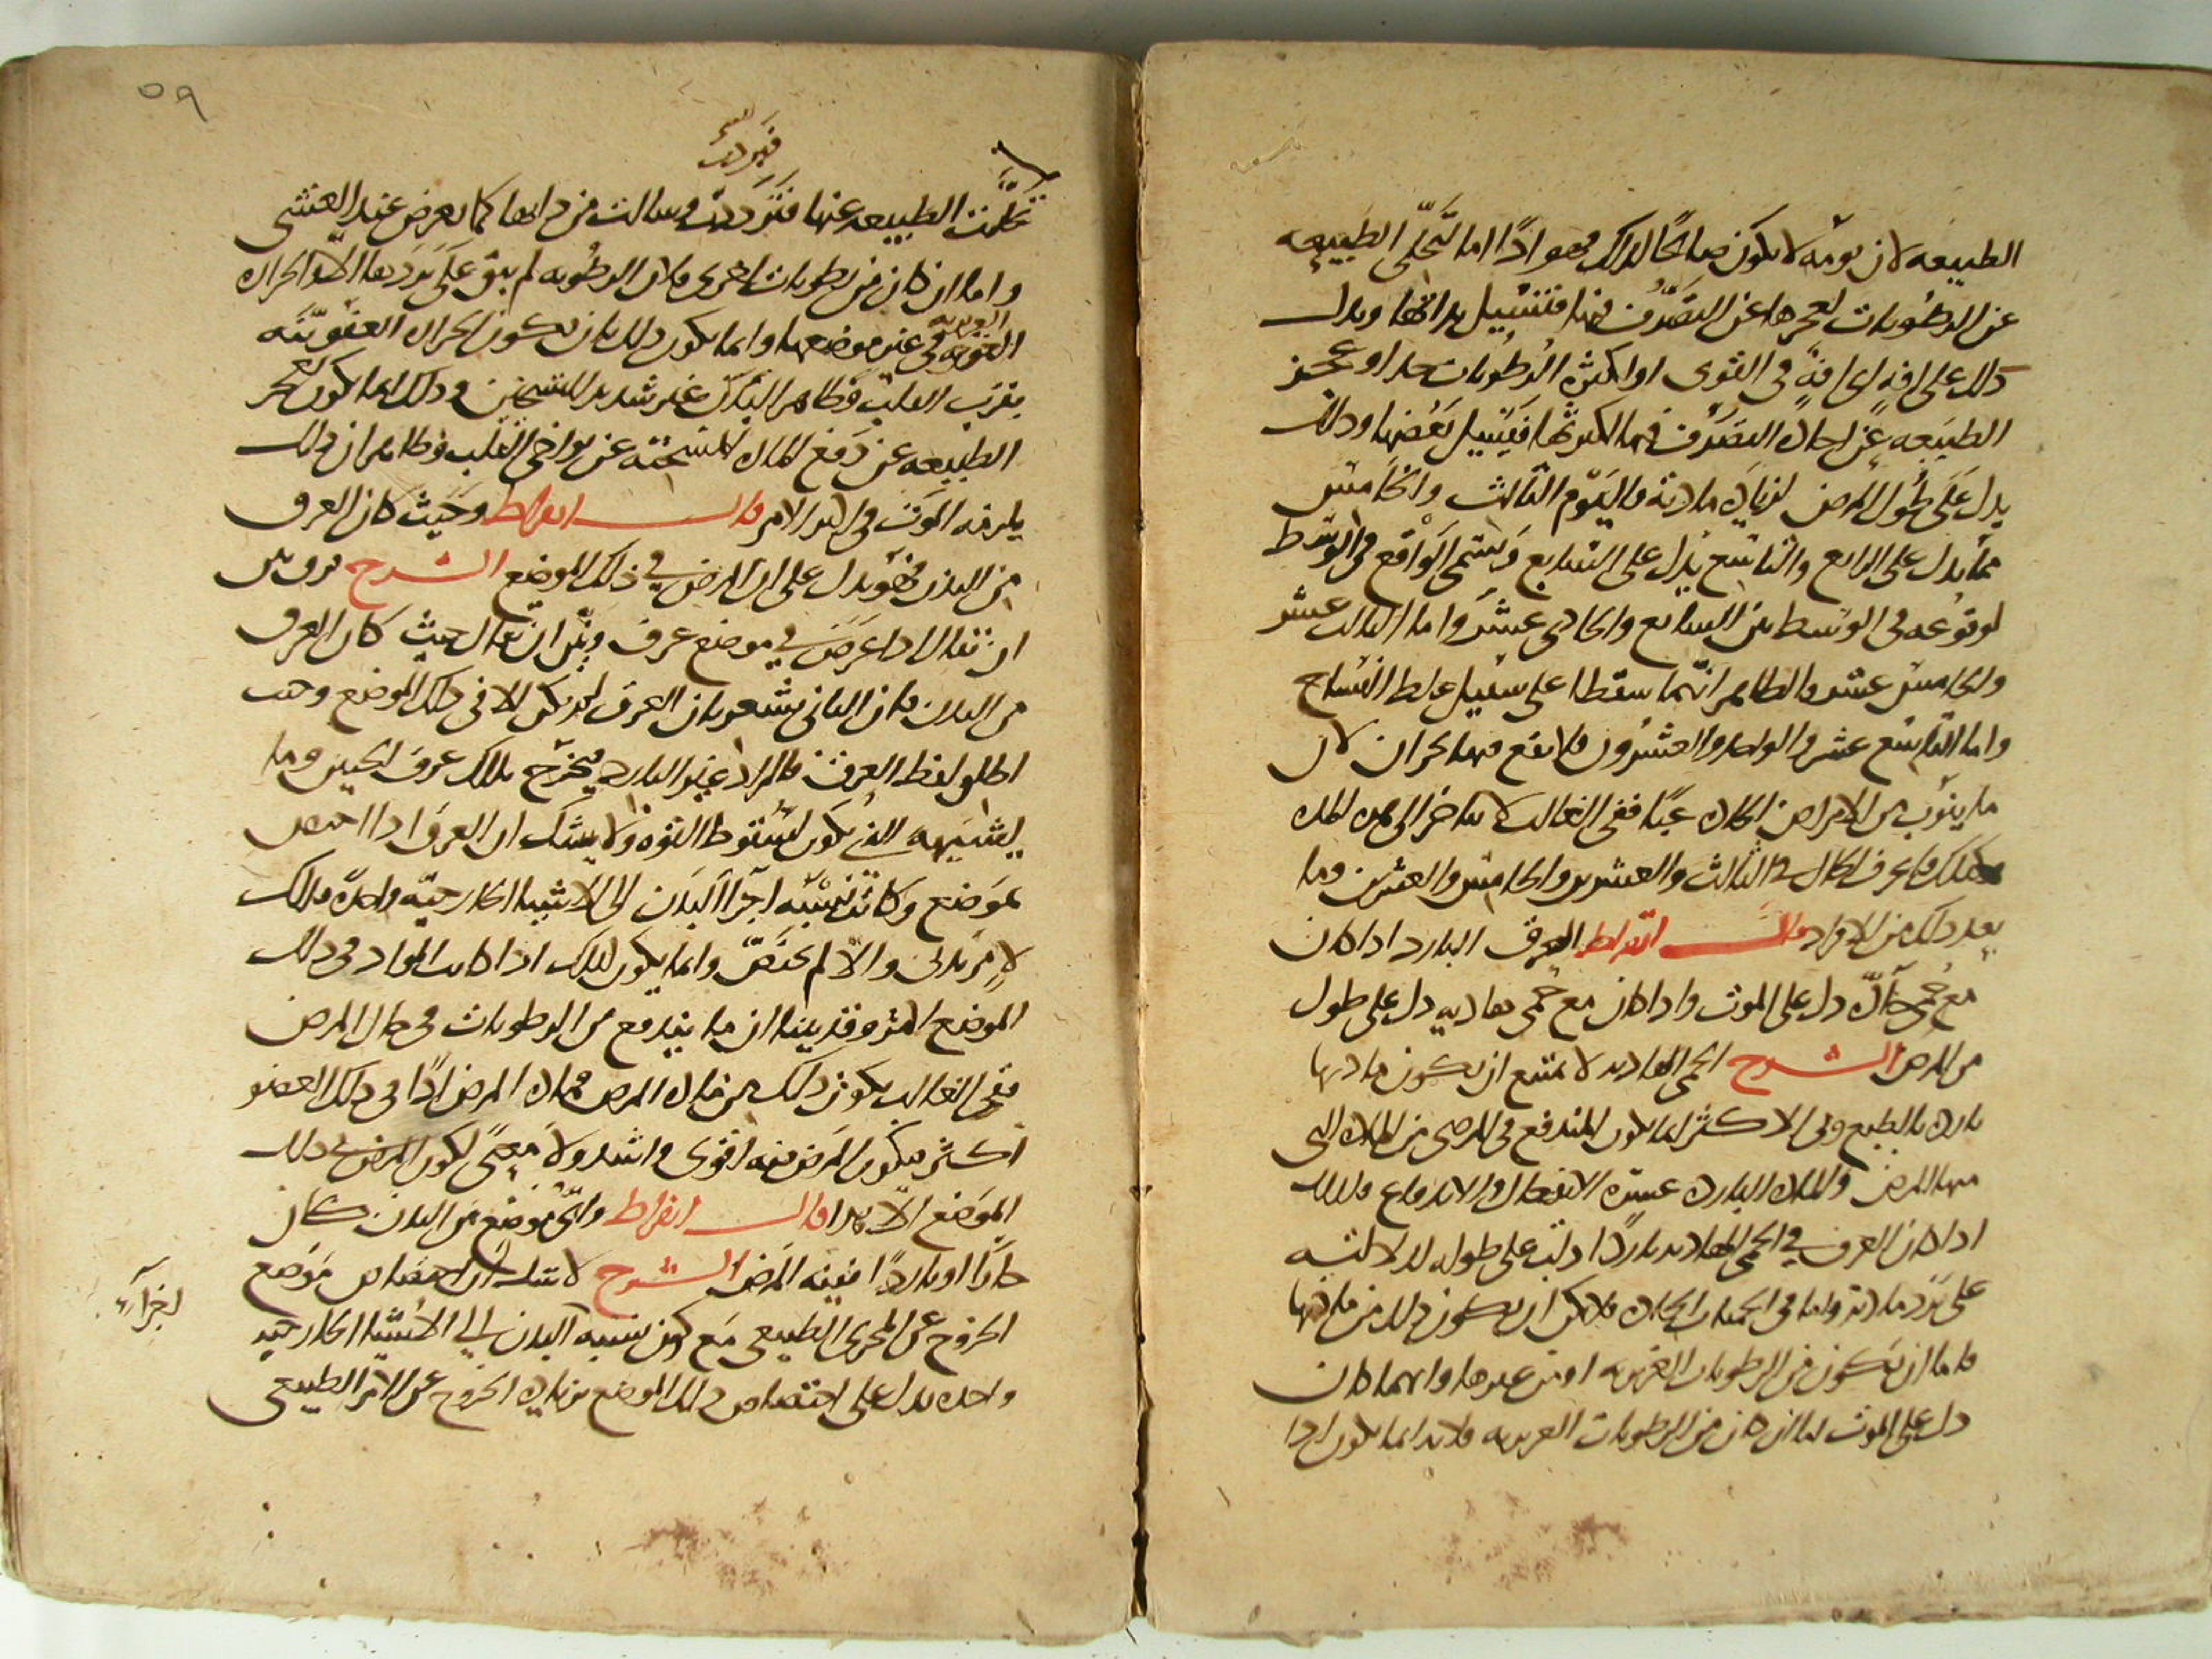 الطبيعه لان يومه لا يكون صالحًا لذلك فهو اذًا اما لتخلّي الطبيعه
عن الرطوبات لعجزها عن التصرّف فيها فتسيل بذاتها ويدل
ذلك على افةٍ اي افةٍ في القوى او لكثرة الرطوبات جدا وعجز
الطبيعه عن احالة التصرّف فيها لكثرتها فيسيل بعضها وذلك
يدل على طول المرض لزيادة مادته واليوم الثالث والخامس
مما يدل على الرابع والتاسع يدل على السابع ويسمى الواقع في الوسط
لوقوعه في الوسط بين السابع والحادي عشر واما الثالث عشر
والخامس عشر فالظاهر انهما سقطا على سبيل غلط النساخ
واما التاسع عشر والواحد والعشرون فلا يقع فيها بحران لان
ما ينوب من الامراض الحادة غبًا ففي الغالب لا يتاخر الى هذه المدة
وكذلك فاعرف الحال في الثالث والعشرين والخامس والعشرين وما
بعد ذلك من الافراد قال ابقراط العرق البارد اذا كان
مع حمى حادّة دل على الموت واذا كان مع حمى هاديه دل على طول
من المرض الشرح الحمى الهاديه لا يمتنع ان يكون مادتها
بارده بالطبع وفي الاكثر انما يكون المندفع في المرض من المادة التى
منها المرض والمادة البارده عسرة الانفعال والاندفاع فلذلك
اذا كان العرق في الحمى الهاديه باردًا دلت على طوله لدلالته
على برد مادته واما في الحميات الحاده فلا يمكن ان يكون ذلك من مادتها
فاما ان يكون من الرطوبات الغريزيه او من غيرها وايهما كان
دل على الموت اما ان كان من الرطوبات الغريزيه فلانه انما يكون اذا
٥٩
تخلّت الطبيعه عنها فتبردت وسالت من ذاتها كما يعرض عند الغشى
واما ان كان من رطوبات اخرى فلان الرطوبه لم يبق على بردها الا والحرارة
القويه في غير موضعها وانما يكون ذلك بان يكون الحرارة العفونيّه
بقرب القلب وظاهر البدن غير شديد التسخين وذلك انما يكون لعجز
الطبيعه عن دفع المادة المسخنة عن نواحى القلب وظاهر ان ذلك
يلزمه الموت في اكثر الامر قال ابقراط وحيث كان العرق
من البدن فهو يدل على ان المرض في ذلك الموضع الشرح فرق بين
ان يقال اذا عرض في موضع عرق وبين ان يقال حيث كان العرق
من البدن فان الثانى يشعر بان العرق لم يكن الا في ذلك الموضع وحيث
اطلق لفظ العرق فالمراد غير البارد فيخرج بذلك عرق الجبين وما
يشبهه الذى يكون لسقوط القوة ولا شك ان العرق اذا اختص
بموضع وكانت نسبه اجزا البدن الى الاشيا الخارجيّه واحدة فذلك
لامر بدنى والا لم يختصّ وانما يكون كذلك اذا كانت المواد في ذلك
الموضع اكثر وقد بينا ان ما يندفع من الرطوبات في حال المرض
ففي الغالب يكون ذلك من مادة المرض فمادة المرض اذًا في ذلك العضو
اكثر فيكون المرض فيه اقوى واشد ولا معنى لكون المرض في ذلك
الموضع الا هذا قال ابقراط واى موضع من البدن كان
حارًا او باردًا ففيه المرض الشرح لا شك ان اختصاص موضع
الخروج عن المجرى الطبيعى مع كون نسبه البدن الى الاشيا الخارجيه
واحده يدل على اختصاص ذلك الموضع بزيادة الخروج عن الامر الطبيعى
اجزآء